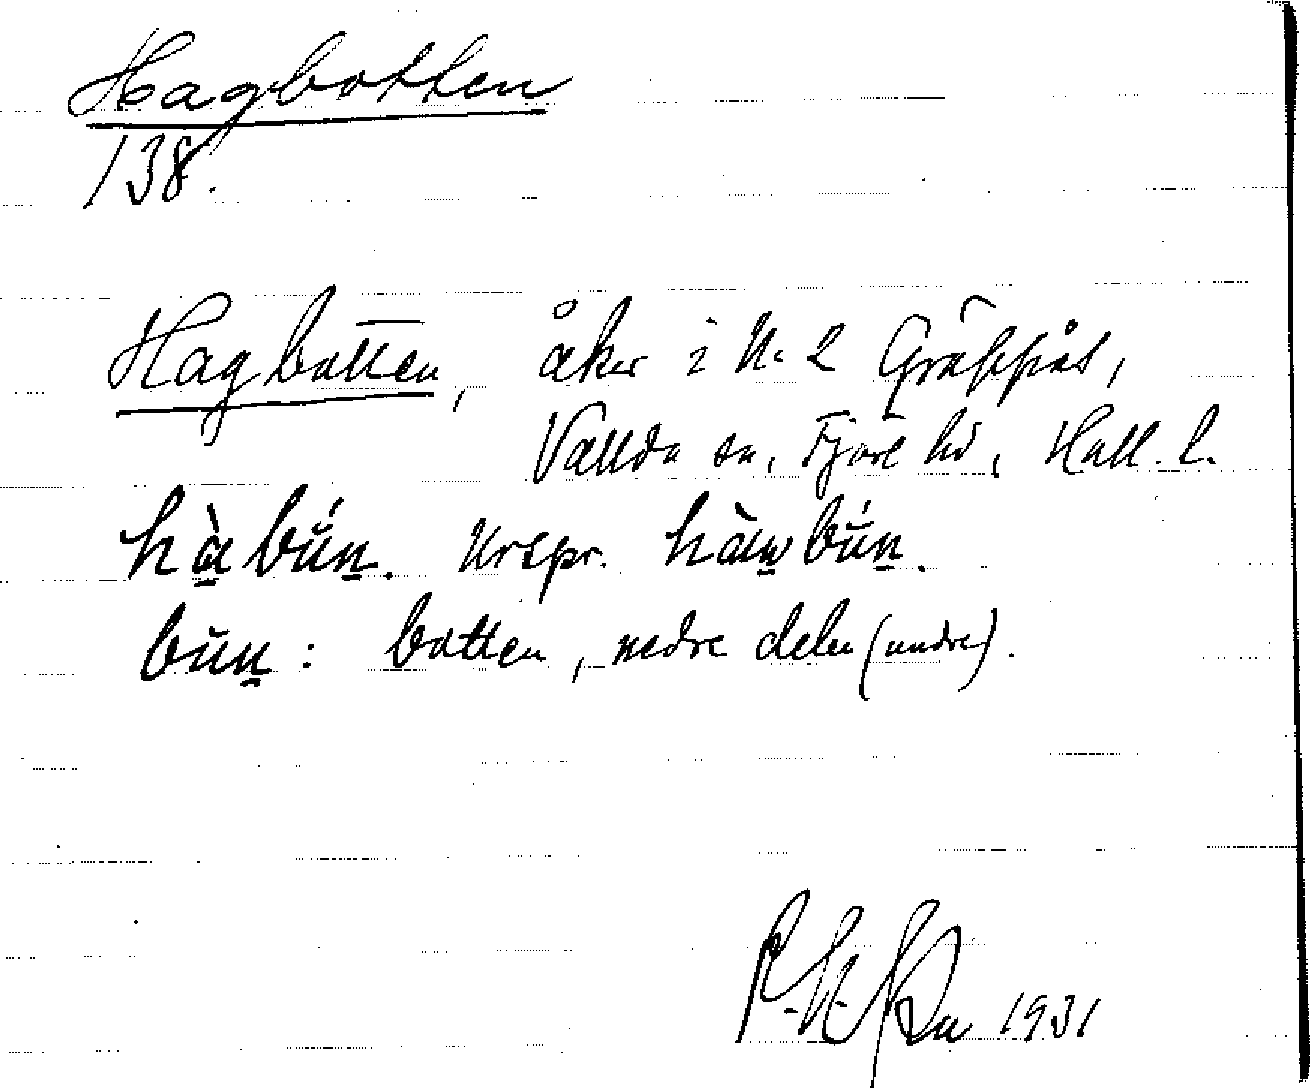 Hagbotten
138.
Hagbotten, åker i N. 2 Gräppås,
Vallda sn, Fjäre hd, Hall. l.
hà̱búṉ. Urspr. hàw̱búṉ.
buṉ: botten, nedre delen (undre).
1931